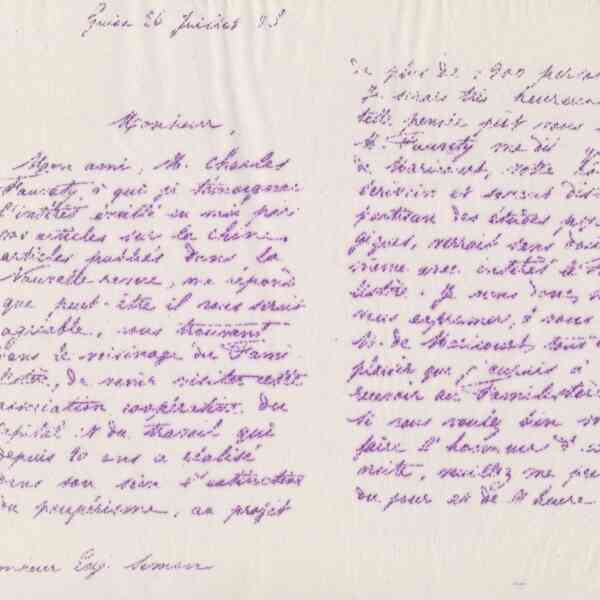 Guise 26 Juillet 85
Monsieur,
Mon ami, M. Charles
Fauvety à qui j'ai témoigné
l'intérêt éveillé en moi par
vos articles sur la Chine,
articles publiés dans la
Nouvelle revue, me répond
que peut-être il vous serait
agréable, vous trouvant
dans le voisinage du Fami
listère, de venir visiter cette
association coopérative du
capital et du travail qui
depuis 20 ans a réalisé
dans son sein l'extinction
du paupérisme, au profit
Monsieur Eug. Simon
de plus de 1900 person
Je serais très heureux
telle pensée pût vous
M. Fauvety me dit
de Maricourt, votre
écrivain et savant dis
partisan des études
giques, verrait sans dou
même avec intérêt le F
listère. Je viens donc,
vous exprimer, à vous
M. de Maricourt, tout
plaisir que j'aurais à
recevoir au Familistère
Si vous voulez bien
faire l'honneur d'
visite, veuillez me pr
du jour et de l'heure